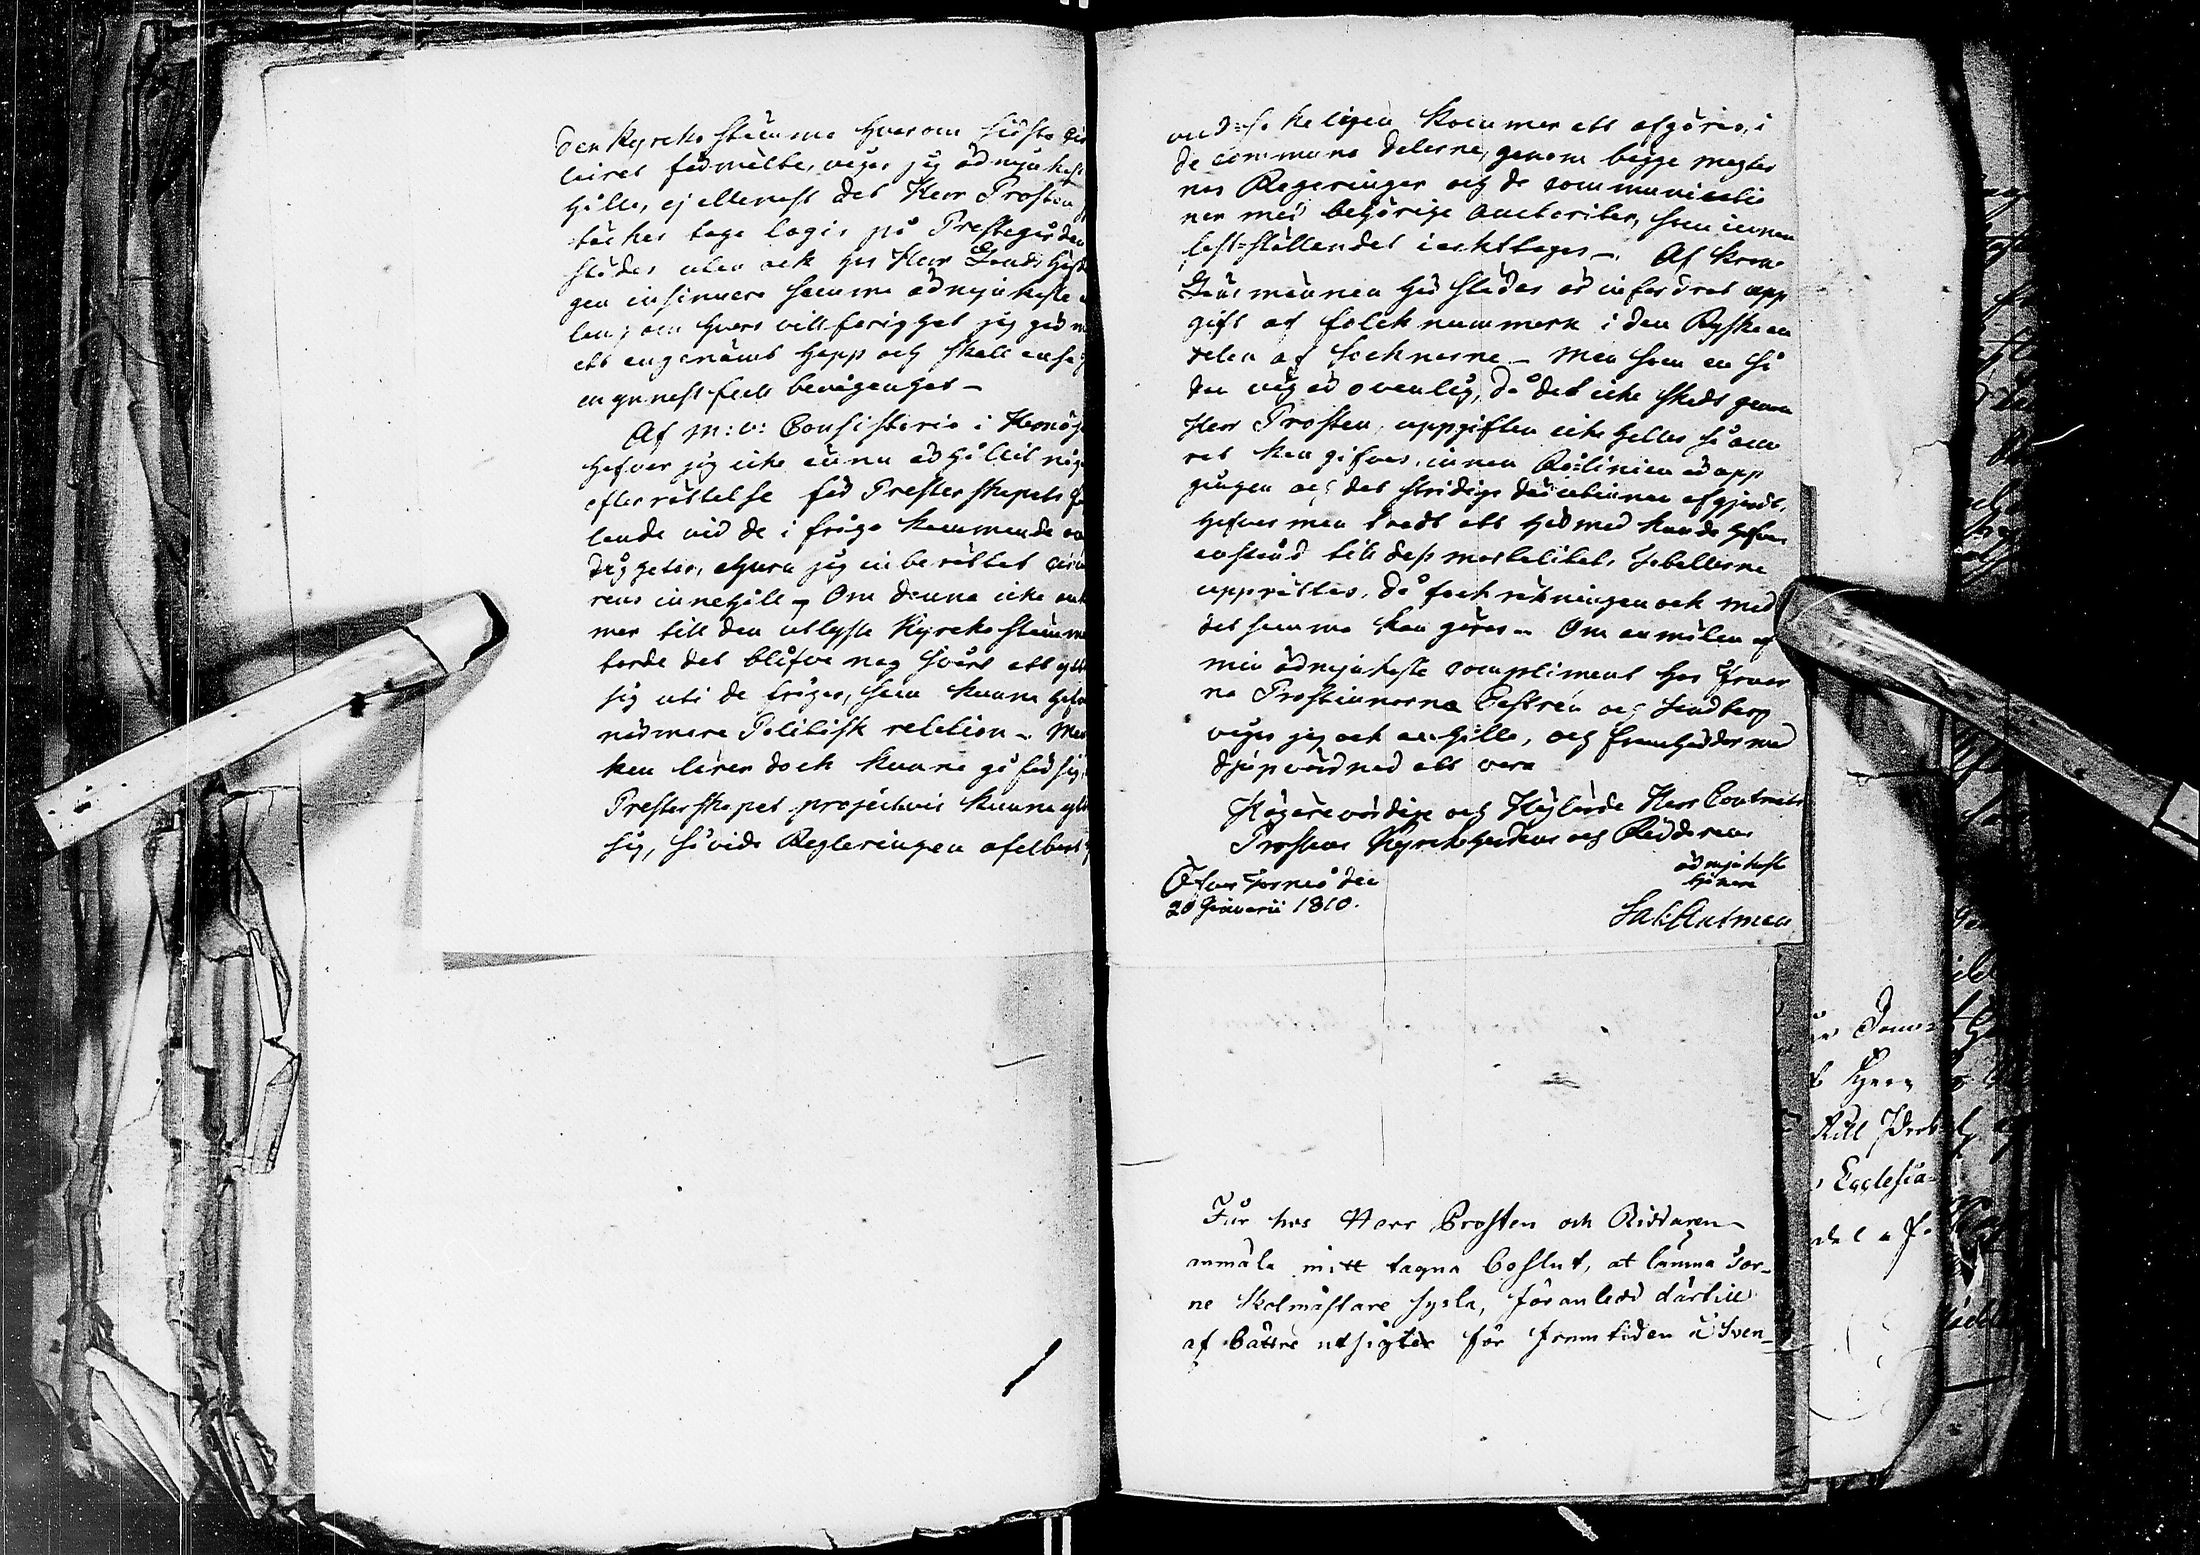 den Kyrko stämma hvarom sidsta Cir
lairet förmälte, vågar jag ödmjukast
hålla, ej allenast det Herr Prosten
täckes taga logis på Prestegården
städes utan ock hos Herr Landshöfd
gen insinuera samma ödmjukaste
lan; om hvars villfarighet jag gör m
ett angenämt hopp och skall anse
en gunstfull bevågenhet -
Af M: V: Consistorio i Hernös
hafver jag icke ännu erhållit någ
efterrättelse för Presterskapets
lande vid de i fråga kommande
digheter, ehuru jag inberättat Circu
rens innehåll - Om denna icke ank
mer till den utlyste Kyrko stämm
torde det blifva nog svårt att ytt
sig uti de frågor, som kunna hafva
närmare Politisk relation - Man
kan lärer dock kunna gå för sig,
Presterskapet projectvis kunna ytt
sig, så vida Regleringen aldelest
vudsakeligen kommer att afgöras, i
de communa delarne, genom bägge magter
nas Regeringar och de communicatio
ner med behörige auctoriter, som innan
fastställandet iakttages -. Af Krono
Länsmännen här städes är infordrat upp
gift af folknummern i den Ryska an
delen af Socknarne - Men som en så
dan väg är ovanlig, då det icke skedt genom
Herr Prosten, uppgiften icke heller så accu
rat kan gifvas, innan Rålinien är upp
gången och det stridiga däruti en afgjordt,
hafver man trodt att härmed kunde hafva
anstånd till dess mortalitets Tabellerne
upprättas, då folkräkningen ock med
det samma kan göras - Om anmälan af
min ödmjukaste compliment hos Fruar
na Prostinnorna Castrén och Sandberg
vågar jag ock anhålla, och framhärdar med
djup vördnad att vara
Högärevördige och Höglärde Herr Contracts
Prostens Kyrkoherdens och Riddarens
ödmjukaste
tjenare
Öfver Torneå den
20 Januarii 1810.
Får hos Herr Prosten och Riddaren
anmäla mitt tagna beslut, at lämna Tor-
ne Skolmästare sysla, föranledd därtill
af bättre utsigter för framtiden i Sven-
Ecclesia-